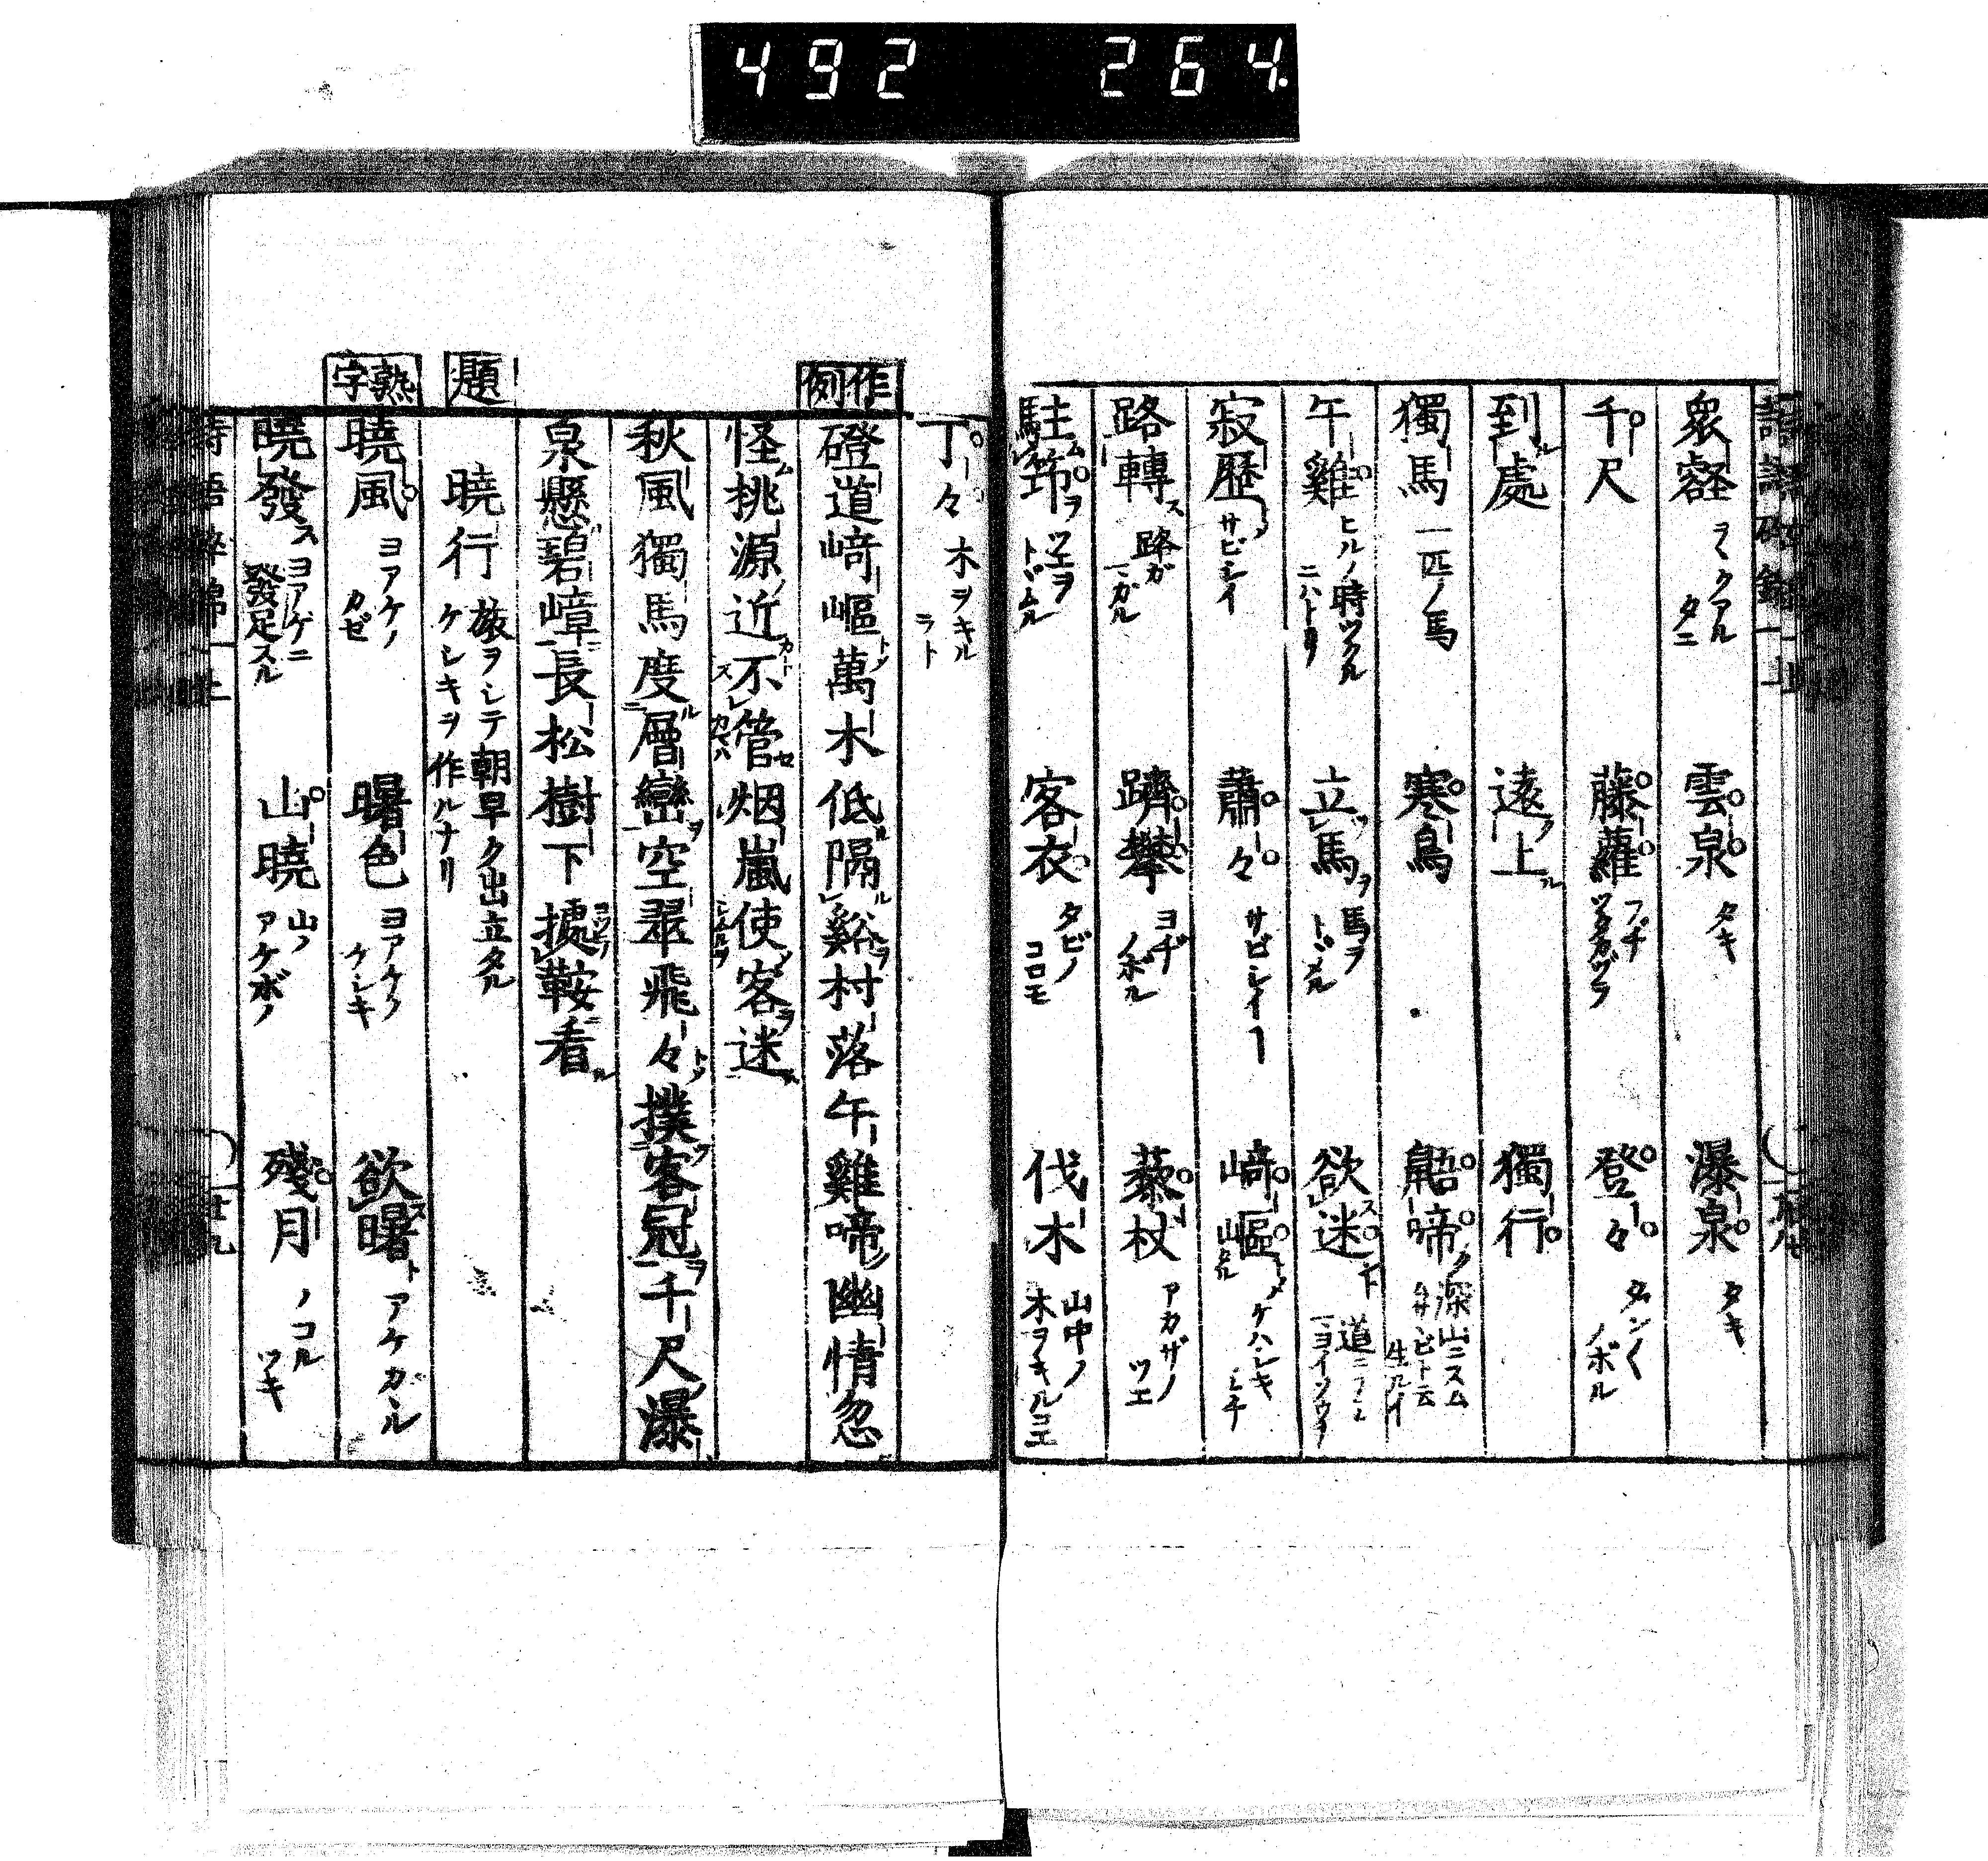 492 264.
衆壑 ヲヽクアル タニ 雲泉 タキ 瀑泉 タキ
千尺 藤蘿 フヂ ツタカヅラ 登々 ダン〱 ノボル
到ル處 遠ク上ル 獨行
獨馬 一匹ノ馬 寒鳥 鼯啼ク 深山ニスム
午雞 ヒルノ時ツクル ニハトリ 立ツ馬ヲ 馬ヲ トヾメル 欲迷ス
寂歷 サビシイ 蕭々 サビシイ 﨑嶇 ケハシキ
路轉ス 路ガ マガル 躋攀 ヨヂ ノボル 藜杖 アカザノ ツエ
駐ム筇ヲ ツエヲ トヾムル 客衣 タビノ コロモ 伐木 山中ノ 木ヲキルコエ
丁々 木ヲキル ヲト
作例
磴道﨑嶇萬木低隔谿村落午雞啼幽情忽
怪桃源近不管烟嵐使客迷
秋風獨馬度層巒空翠飛々撲客冠千尺瀑
泉懸碧嶂長松樹下據鞍看
題
曉行 旅ヲシテ朝早ク出立タル ケシキヲ作ルナリ
熟字
曉風 ヨアケノ カゼ 曙色 ヨアケノ ケシキ 欲曙スト アケガシ
曉發ス ヨアケニ 發足スル 山曉 山ノ アケボノ 殘月 ノコル ツキ